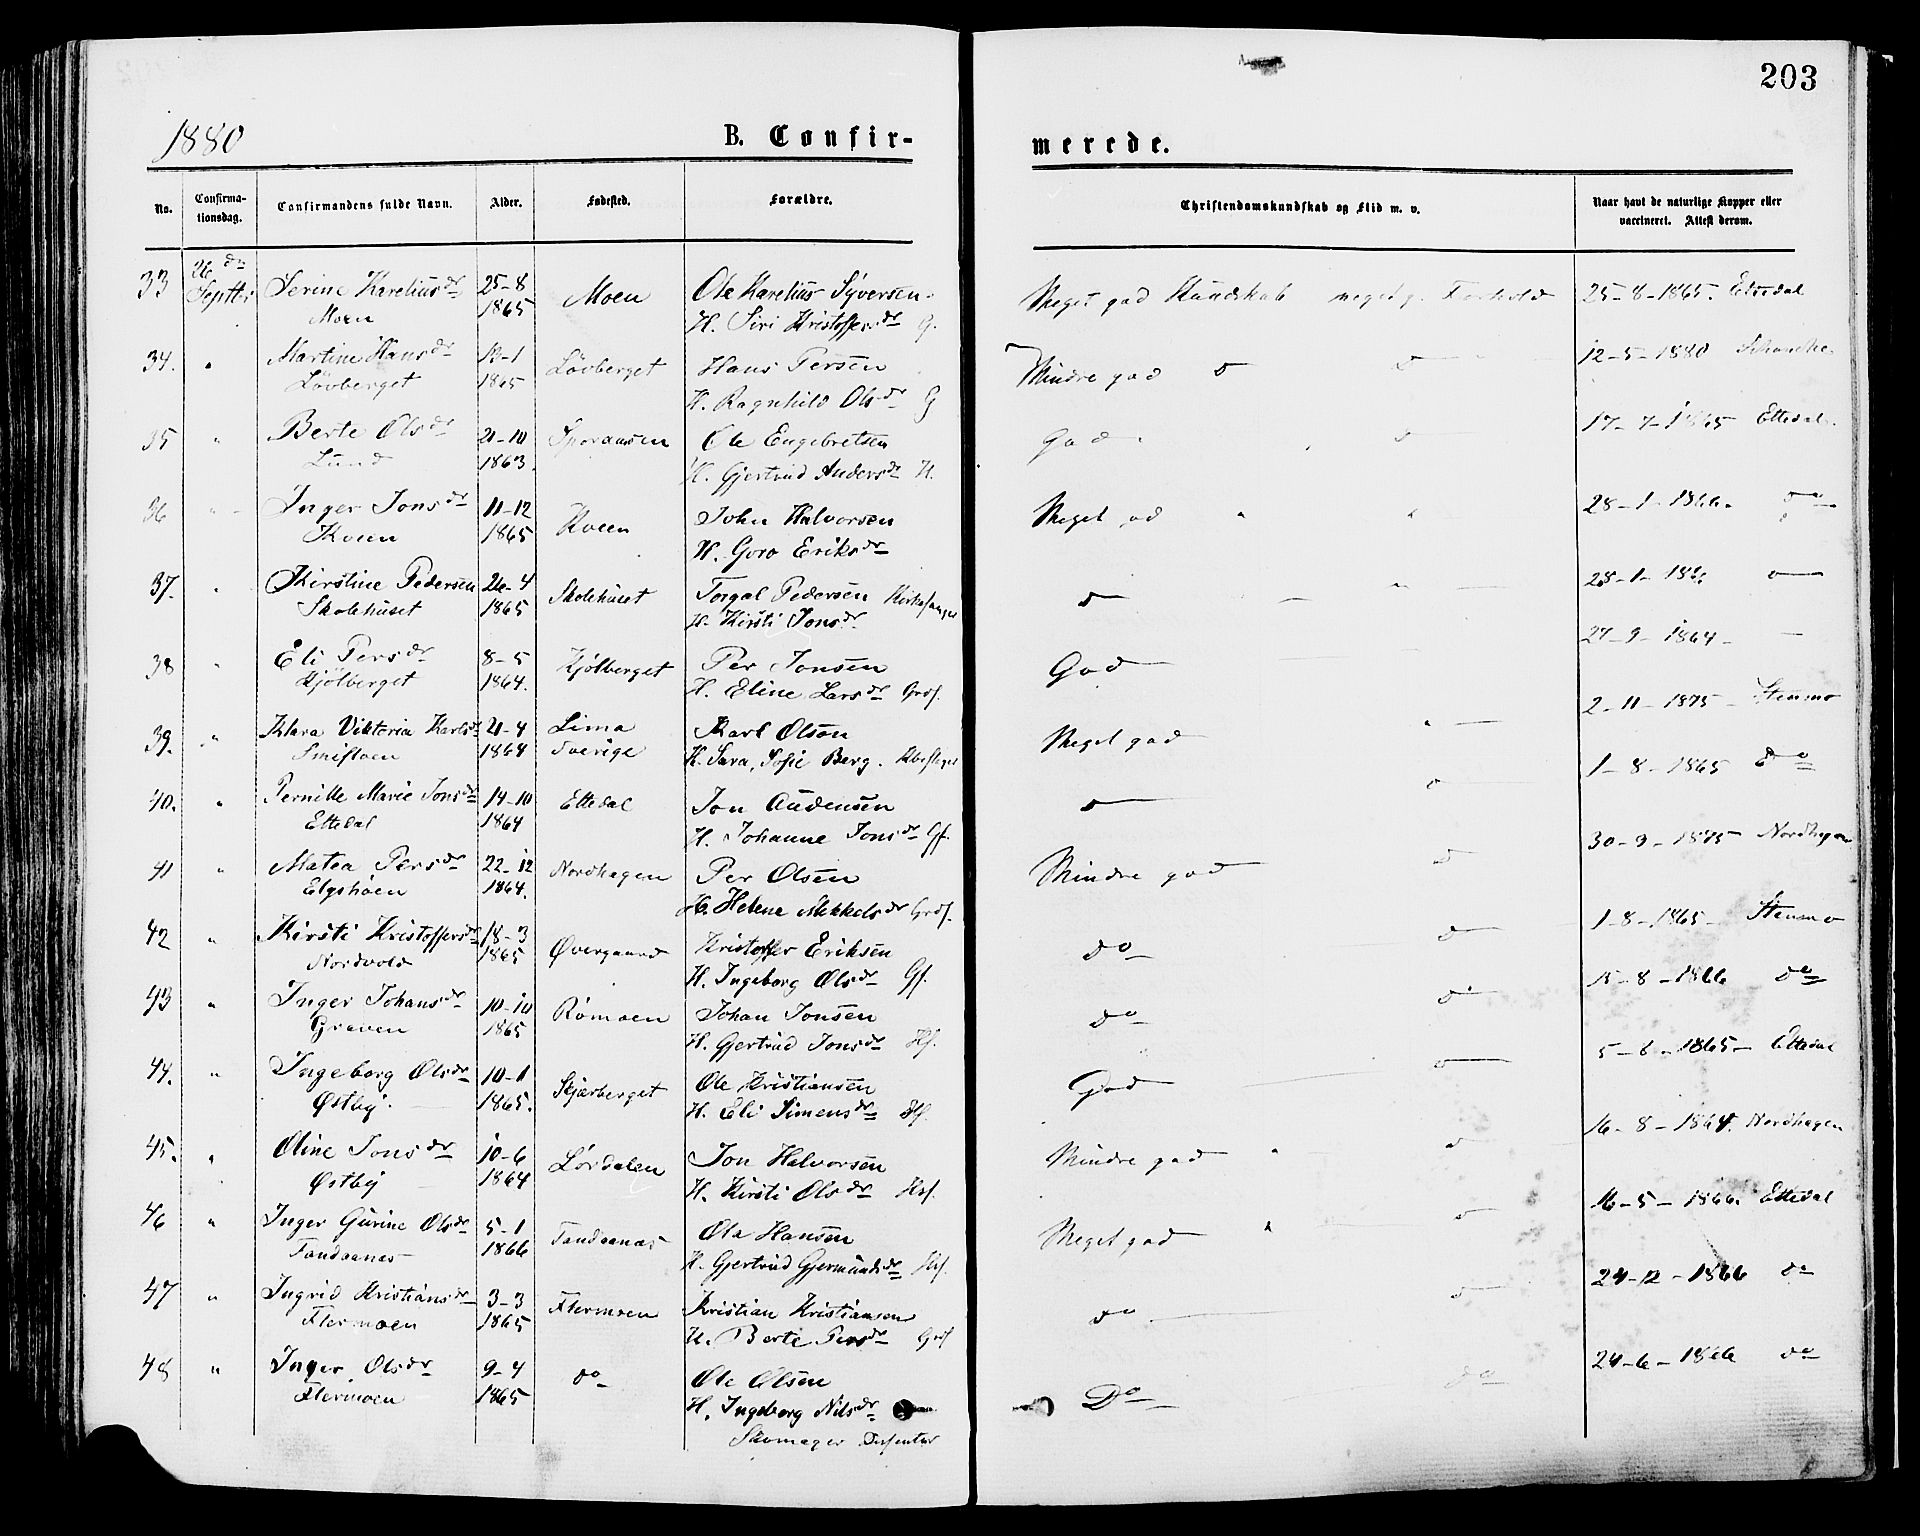 203
1880
B. Confir-
merede.
No.
Confirma-
tionsdag.
Confirmandens fulde Navn.
Alder.
Fødested.
Forældre.
Christendomskundskab og Flid m. v.
Naar havt de naturlige Kopper eller
vaccineret. Attest derom.
33 26 de Septbr Serine Kareliusdr 25-8 Moen Ole Karelius Syversen Meget god Kundskab meget g. Forhold 25-8-1865. Ettedal
Moen 1865 H. Siri Kristoffersdr G.
34. " Martine Hansdr 12-1 Løvberget Hans Persen Mindre god 12-5-1880
Løvberget 1865 H. Ragnhild Olsdr G
35 " Berte Olsdr 21-10 Ole Engebretsen God 17-7-1865 Ettedal.
Lund 1863. H. Gjertrud Andersdr H.
36 " Inger Jonsdr 11-12 Kveen John Halvorsen Meget 28-1-1866. do
Kveen 1865 H. Goro Eriksdr
37. " Kirstine Pedersen 26-4 Skolehuset Torgal Pedersen Kirkesanger do 28-1-
Skolehuset 1865 H. Kirsti Jonsdr
38 " Eli Persdr 8-5 Kjølberget Per Jonsen God 27-9-1864 -
Kjølberget 1864. H. Eline Larsdr Grdf.
39. " Klara Viktoria Karlsdr 21-4 Lima Karl Olsen Meget god 2-11-1875 Stenmo
Smistoen 1864 Sverige H. Sara Sofie Berg.
40. " Pernille Marie Jonsdr 14-10 Ettedal Jon Audensen do 1-8-1865 do
Ettedal 1864 H. Johanne Jonsdr Gf.
41 " Matea Persdr 22-12 Nordhagen Per Olsen Mindre god 30-9-1875 Nordhagen
Elgshoen 1864. H. Helene Mikkelsdr Grdf.
42 " Kirsti Kristoffersdr 18-3 Øvergaard Kristoffer Eriksen do 1-8-1865 Stenmo
Nordvold 1865 H. Ingeborg Olsdr Gf.
43 " Inger Johansdr 10-10 Rømoen Johan Jonsen do 15-8-1866 do
Graven 1865 H. Gjertrud Jonsdr Hf.
44. " Ingeborg Olsdr 10-1 Skjærberget Ole Kristiansen God 5-6-1865 Ettedal
Østby. 1865. H. Eli Simensdr Hf.
45. " Oline Jonsdr 10-6 Lørdalen Jon Halvorsen Mindre god " 16-8-1864. Nordhagen
Østby 1864 H. Kirsti Olsdr Hsf.
46 " Inger Gurine Olsdr 5-1 Tandaanæs Ole Hansen Meget god " 16-5-1866. Ettedal
Tandaanæs 1866 H. Gjertrud Gjermundsdr Hsf.
47 " Ingrid Kristiansdr 3-3 Flermoen Kristian Kristiansen do 24-12-1866 do
Flermoen 1865 H. Berte Persdr Grdf
48 " Inger Olsdr 9-4 do Ole Olsen Do do 24-6-1866 do
Flermoen 1865 H. Ingeborg Nilsdr
Skomager